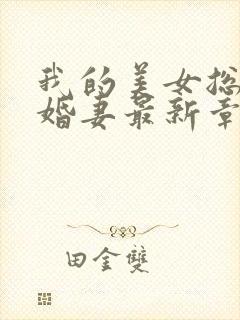 我的美女总
婚妻最新章
田金雙